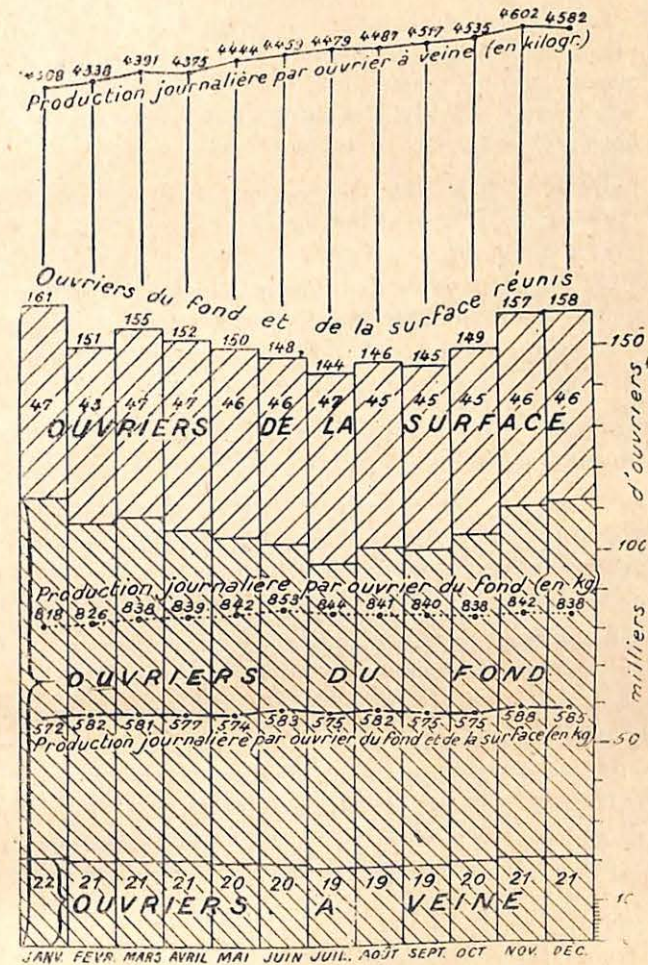 4308 4338 4391 4375 4444 4459 4479 4487 4517 4535 4602 4582
Production journalière par ouvrier à veine (en kilogr.)
Ouvriers du fond et de la surface réunis
161 151 155 152 150 148 144 146 145 149 157 158
150
47 43 47 47 46 46 47 45 45 45 46 46
OUVRIERS DE LA SURFACE
milliers d'ouvriers
100
Production journalière par ouvrier du fond (en kg)
818 826 838 839 842 853 844 841 840 838 842 838
OUVRIERS DU FOND
572 582 581 577 574 583 575 582 575 575 588 585
Production journalière par ouvrier du fond et de la surface (en kg)
50
22 21 21 21 20 20 19 19 19 20 21 21
OUVRIERS A VEINE
10
JANV. FEVR. MARS AVRIL MAI JUIN JUIL. AOÛT SEPT. OCT NOV. DÉC.